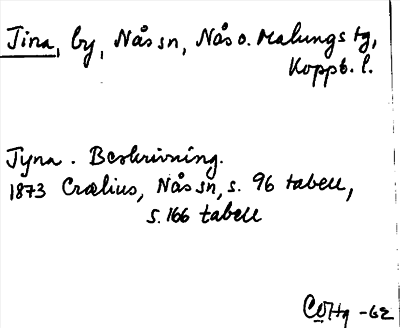 Tina, by, Nås sn, Nås o. Malungs tg,
Koppb. l.
Tyna. Beskrivning.
1873 Crælius, Nås sn, s. 96 tabell,
s. 166 tabell
COHg -62